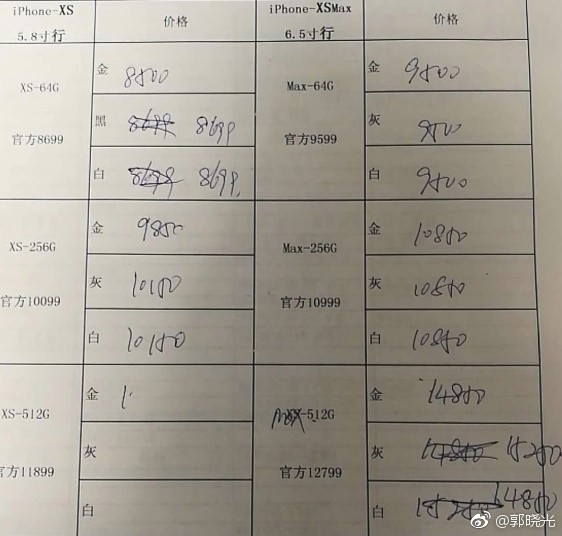 iPhone-XS
5.8寸行
价格
iPhone-XSMax
6.5寸行
价格
XS-64G
官方8699
金 8800
黑 8699 8699
白 8699 8699
Max-64G
官方9599
金 9800
灰 9800
白 9800
XS-256G
官方10099
金 9850
灰 10180
白 10180
Max-256G
官方10999
金 10850
灰 10850
白 10850
XS-512G
官方11899
金 1
灰
白
MAX-512G
官方12799
金 14850
灰 14850 15250
白 15250 14850
@郭晓光